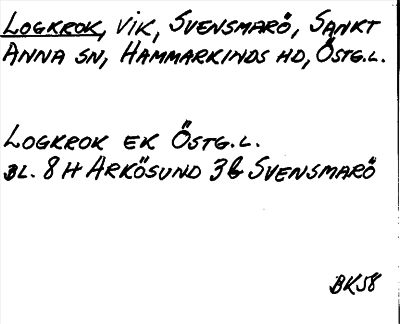 LOGKROK, VIK, SVENSMARÖ, SANKT
ANNA SN, HAMMARKINDS HD, ÖSTG.L.
LOGKROK EK ÖSTG.L.
BL. 8 H ARKÖSUND 3b SVENSMARÖ
BK58